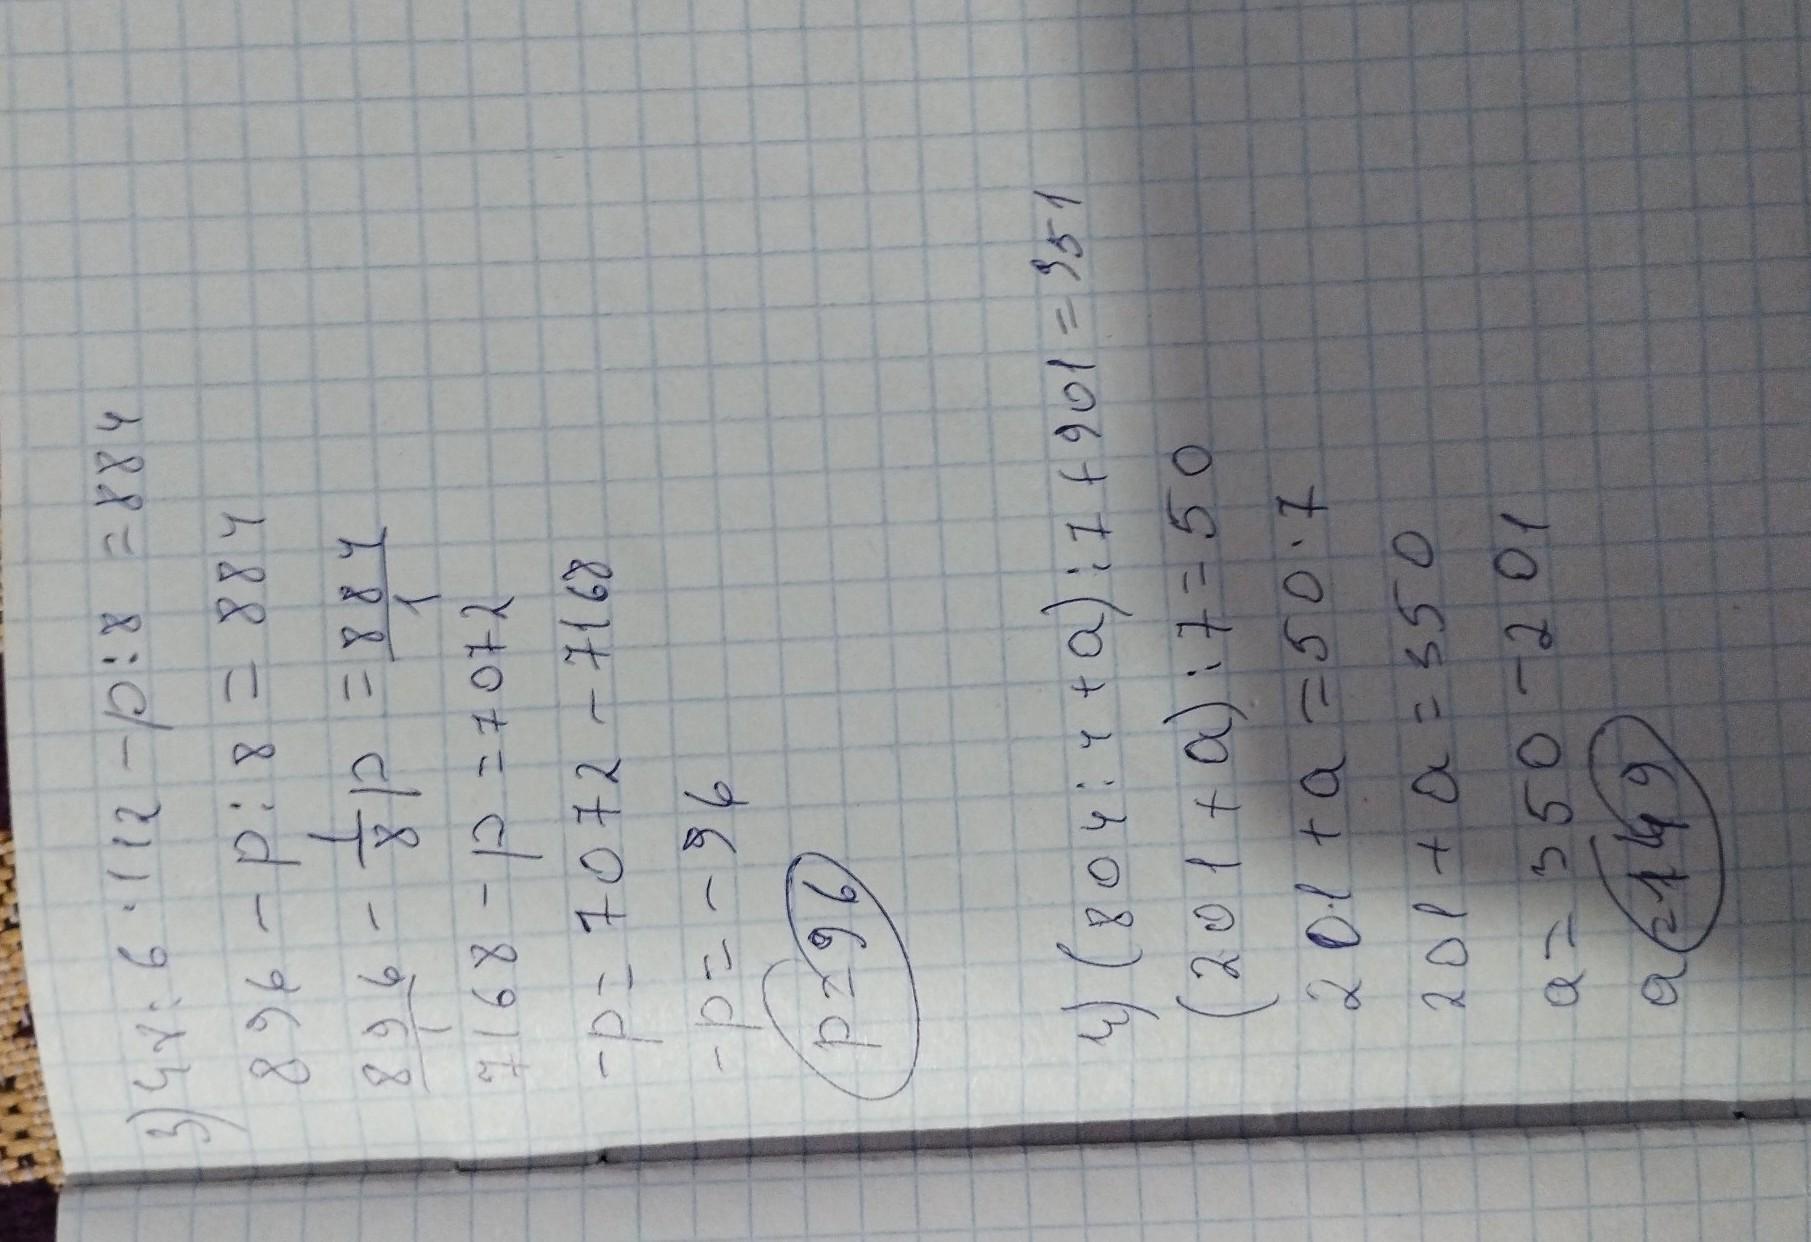 3) 48 : 6 · 112 - p : 8 = 884
896 - p : 8 = 884
896/1 - 1/8 p = 884/1
7168 - p = 7072
-p = 7072 - 7168
-p = - 96
p = 96
4) (804 : 4 + a) : 7 + 901 = 951
(201 + a) : 7 = 50
201 + a = 50 · 7
201 + a = 350
a = 350 - 201
a = 149